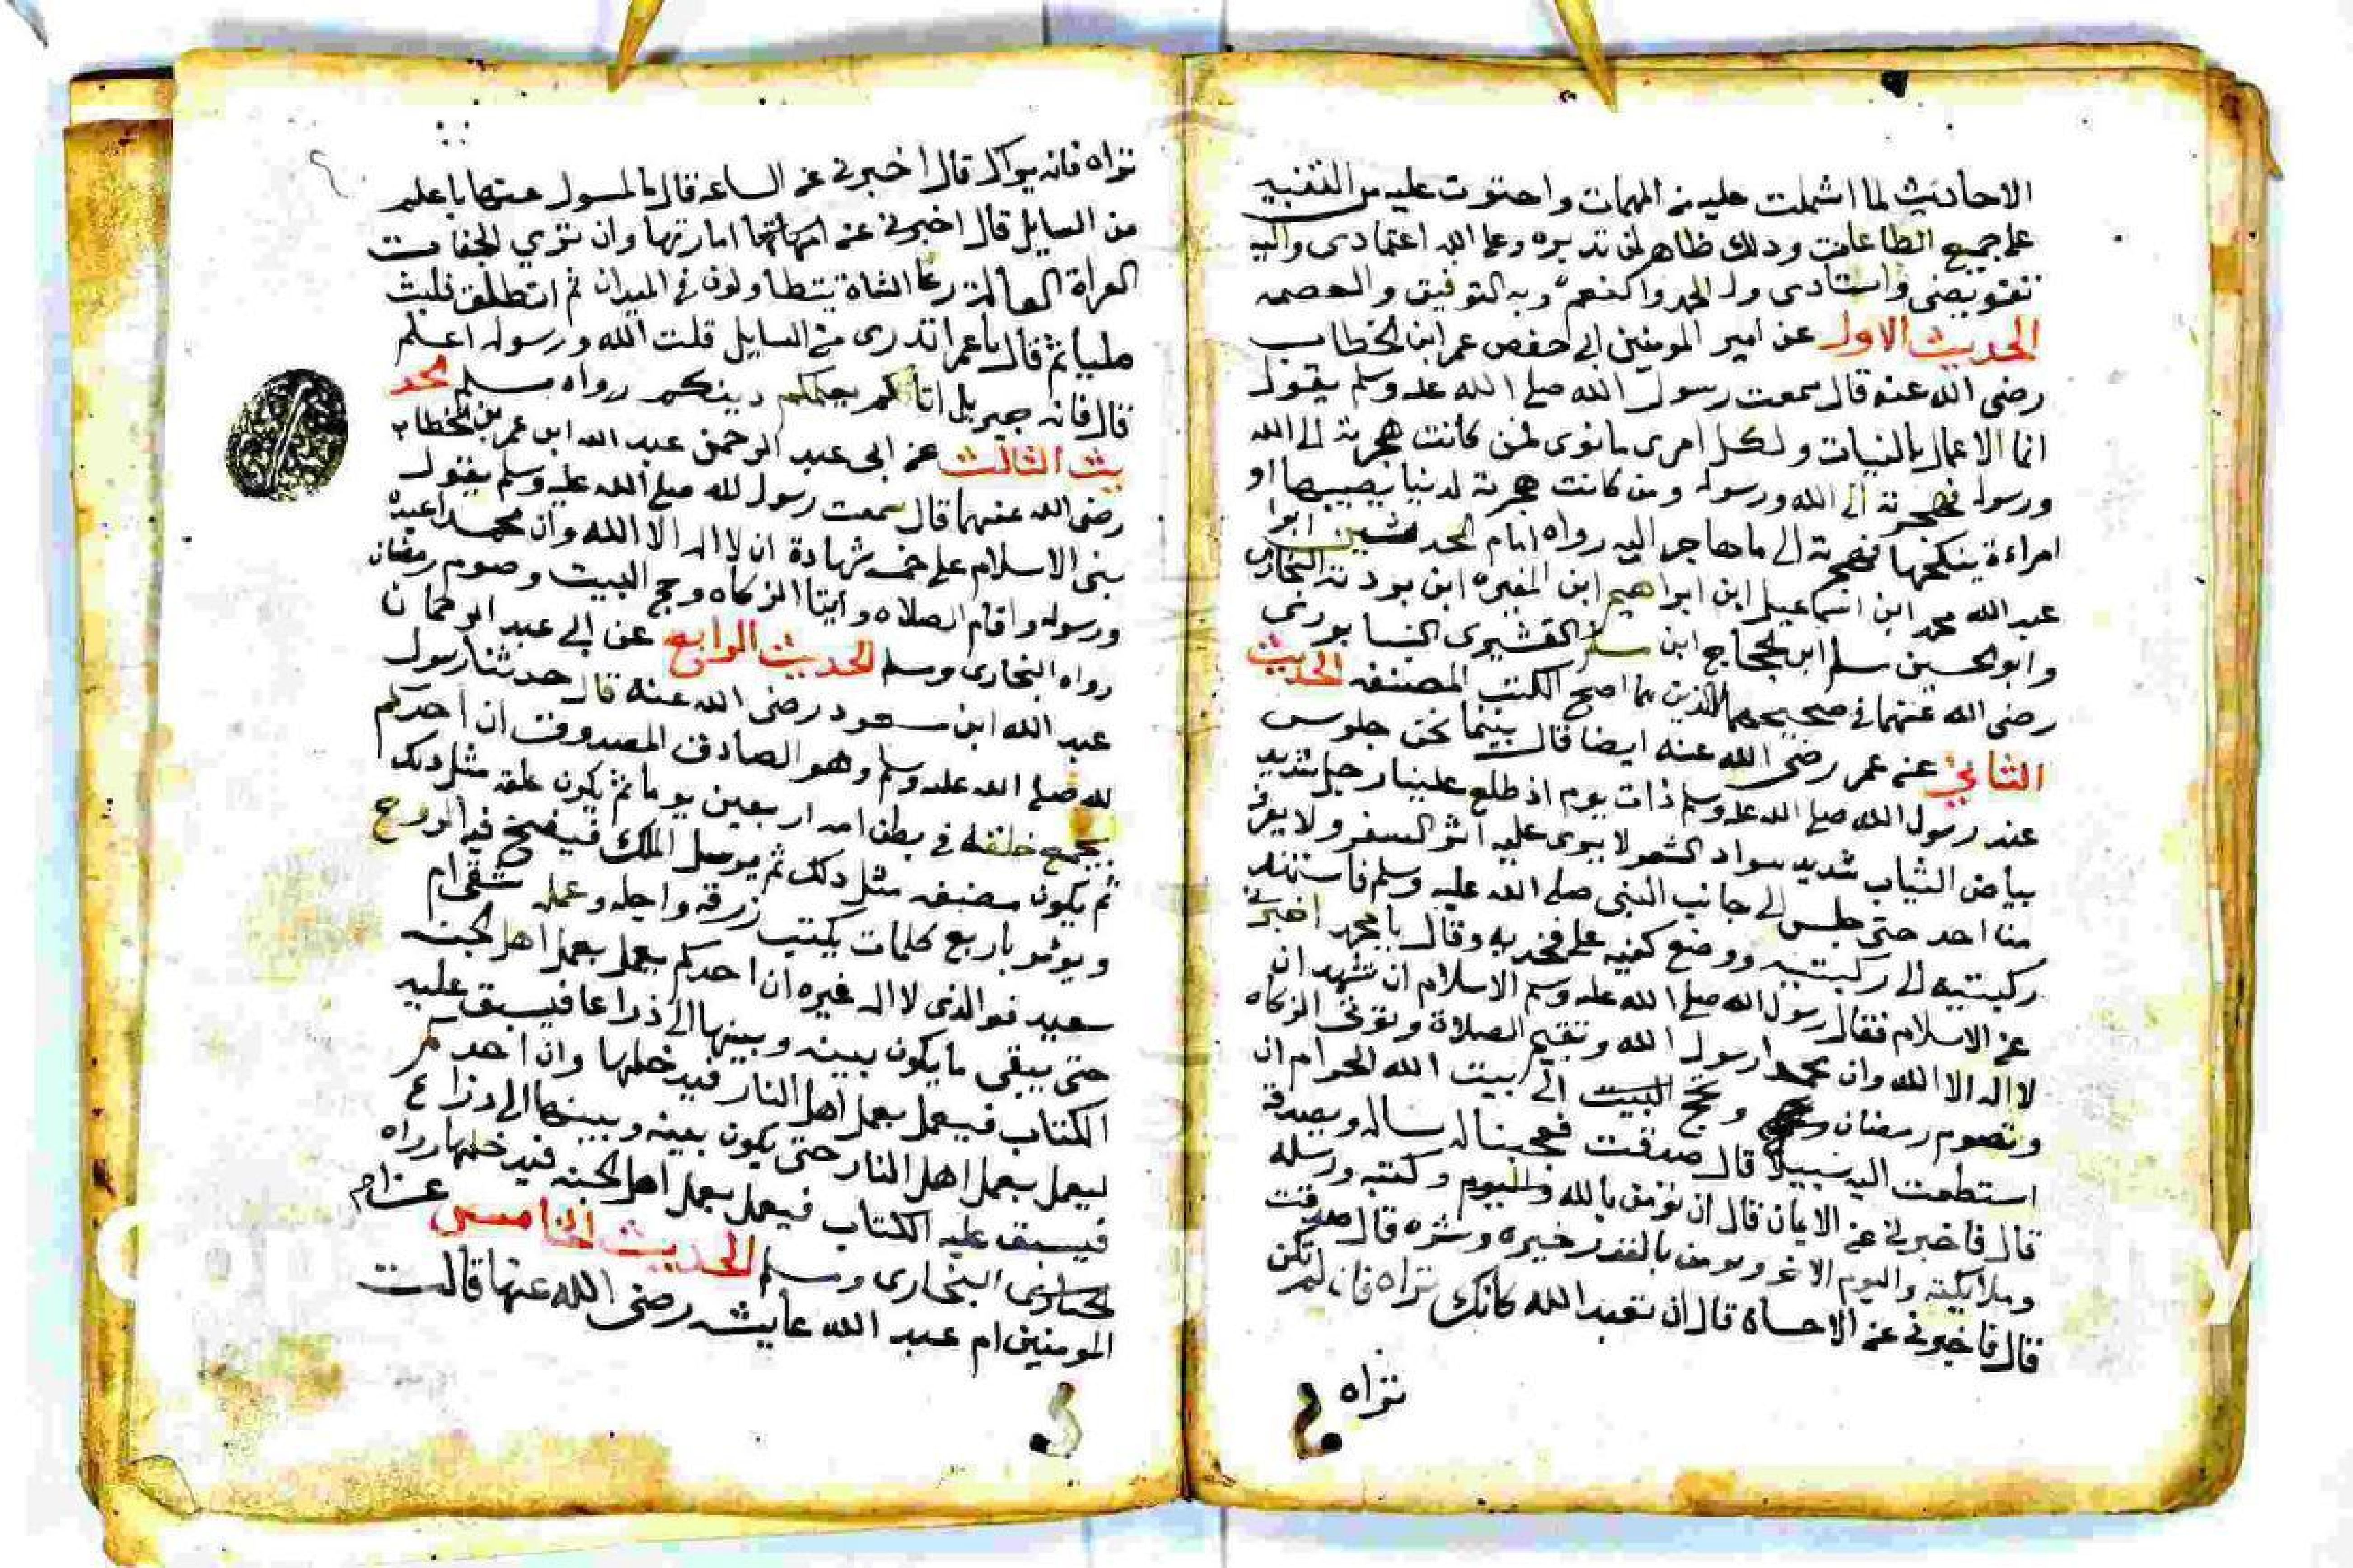 الاحاديث لما اشملت عليه من المهمات واحتوت عليه من التنبيه
على جميع الطاعات وذلك ظاهر لمن تدبره وعلى الله اعتمادى واليه
تفويضى واستادى وله الحمد والنعم وبه التوفيق والعصمه
الحديث الاول عن امير المومنين ابى حفص عمر ابن الخطاب
رضى الله عنه قال سمعت رسول الله صلى الله عليه وسلم يقول
انما الاعمال بالنيات ولكل امرى مانوى لمن كانت هجرته الى الله
ورسوله فهجرته الى الله ورسوله ومن كانت هجرته لدنيا يصيبها او
امراءة ينكحها فهجرته الى ماهاجر اليه رواه امام المحدثين ابوا
عبد الله محمد ابن اسماعيل ابن ابراهيم ابن المغيره ابن بردته البخارى
وابو الحسين مسلم ابن الحجاج ابن مسلم القشيرى النيسابورى
رضى الله عنهما فى صحيحهما اللذين هما اصح الكتب المصنفه الحديث
الثانى عن عمر رضى الله عنه ايضا قال بينما نحن جلوس
عند رسول الله صلى الله عليه وسلم ذات يوم اذ طلع علينا رجل شديد
بياض الثياب شديد سواد الشعر لا يرى عليه اثر السفر ولا يعرفه
منا احد حتى جلس الى جانب النبى صلى الله عليه وسلم فاستند
ركبتيه الى ركبتيه ووضع كفيه على فخذيه وقال يا محمد اخبرنى
عن الاسلام فقال رسول الله صلى الله عليه وسلم الاسلام ان تشهد ان
لا اله الا الله وان محمدا رسول الله وتقيم الصلاة وتوتى الزكاه
وتصوم رمضان وتحج البيت الى بيت الله الحرام ان
استطعت اليه سبيلا قال صدقت فعجبنا له يساله ويصدقه
قال فاخبرنى عن الايمان قال ان تومن بالله واليوم وكتبه ورسله
وملايكته واليوم الاخر وتومن بالقدر خيره وشره قال صدقت
قال فاخبرنى عن الاحسان قال ان تعبد الله كانك تراه فان لم تكن
تراه
تراه فانه يراك قال اخبرنى عن الساعه قال ما المسول عنها باعلم
من السايل قال اخبرنى عن امارتها وان ترى الحفات
العراة العالة رعا الشاة يتطاولون فى البنيان ثم انطلق فلبث
مليا ثم قال يا عمر اتدرى من السايل قلت الله ورسوله اعلم
قال فانه جبريل اتاكم يعلمكم دينكم رواه مسلم الحد
يث الثالث عن ابى عبد الرحمن عبد الله ابن عمر بن الخطاب
رضى الله عنهما قال سمعت رسول الله صلى الله عليه وسلم يقول
بنى الاسلام على خمس شهادة ان لا اله الا الله وان محمد اعبده
ورسوله واقام الصلاه وايتا الزكاه وحج البيت وصوم رمضان
رواه البخارى ومسلم الحديث الرابع عن ابى عبد الرحمان
عبد الله ابن مسعود رضى الله عنه قال حدثنا رسول
لله صلى الله عليه وسلم وهو الصادق المصدوقت ان احدكم
يجمع خلقه فى بطن امه اربعين يوما ثم يكون علقه مثل ذلك
ثم يكون مضغه مثل ذلك ثم يرسل الملك فينفخ فيه الروح
ويومر باربع كلمات يكتب رزقه واجله وعمله شقى ام
سعيد فوالذى لا اله غيره ان احدكم يعمل بعمل اهل الجنه
حتى يبقى مايكون بينه وبينها الى ذراعا فيسبق عليه
الكتاب فيعمل بعمل اهل النار فيدخلها وان احدكم
ليعمل بعمل اهل النار حتى يكون بينه وبينها الى ذراع
فيسبق عليه الكتاب فيعمل بعمل اهل الجنه فيدخلها رواه
البخارى ومسلم الحديث الخامس عن ام
المومنين ام عبد الله عايشه رضى الله عنها قالت